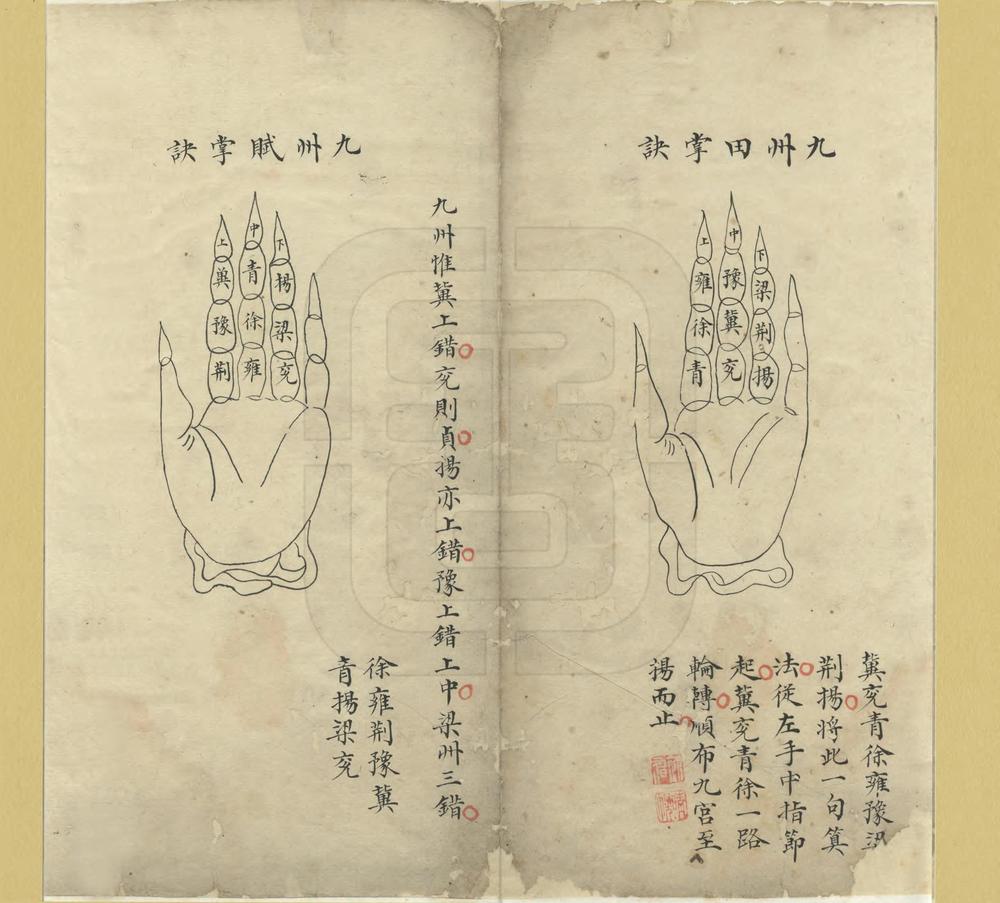 九州田掌訣
下梁荆揚
中豫冀兖
上雍徐青
冀兖青徐雍豫
荆揚將此一句筭
法從左手中指節
起冀兖青徐一路
輪轉順布九宫至
揚而止
九州惟冀上錯兖則貞揚亦上錯豫上錯上中梁州三錯
九州賦掌訣
下揚梁兖
中青徐雍
上冀豫荆
徐雍荆豫冀
青揚梁兖